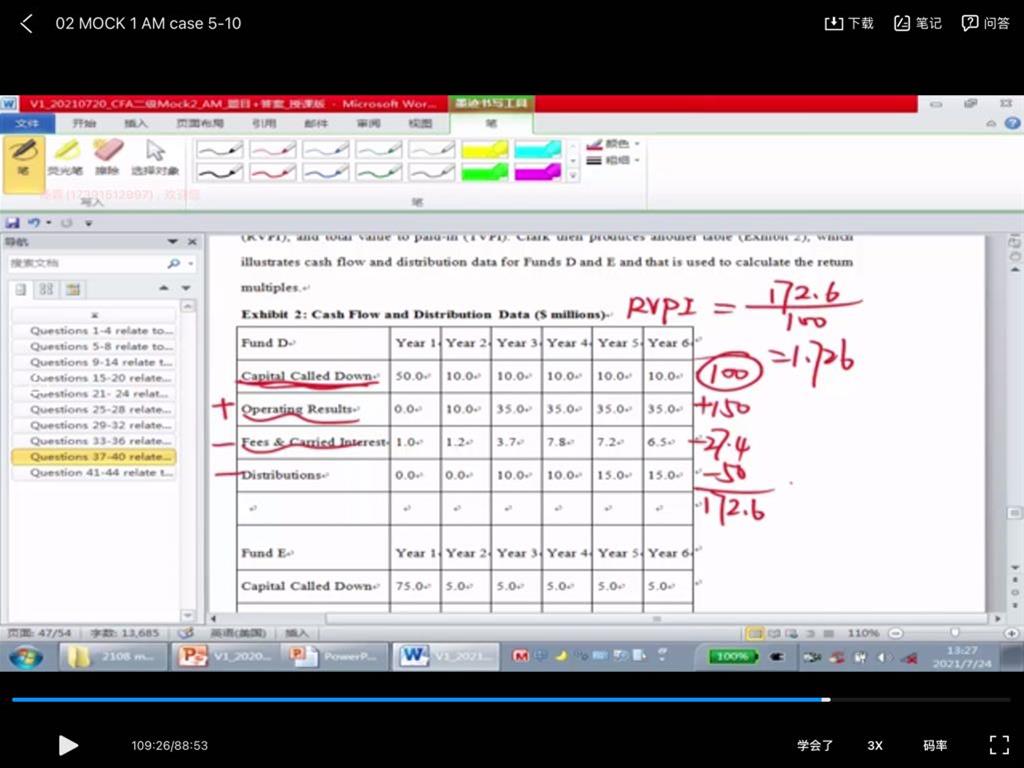 02 MOCK 1 AM case 5-10
下载 笔记 问答
V1_20210720_CFA二级Mock2_AM_题目+答案_授课版 - Microsoft Wor... 墨迹书写工具
文件 开始 插入 页面布局 引用 邮件 审阅 视图 笔
笔 荧光笔 擦除 选择对象
颜色
粗细
写入 笔
导航
搜索文档
Questions 1-4 relate to...
Questions 5-8 relate to...
Questions 9-14 relate t...
Questions 15-20 relate...
Questions 21- 24 relat...
Questions 25-28 relate...
Questions 29-32 relate...
Questions 33-36 relate...
Questions 37-40 relate...
Question 41-44 relate t...
(RVPI), and total value to paid-in (TVPI). Clark then produces another table (Exhibit 2), which
illustrates cash flow and distribution data for Funds D and E and that is used to calculate the return
multiples.
Exhibit 2: Cash Flow and Distribution Data ($ millions)
RVPI = 172.6
100
=1.726
Fund D Year 1 Year 2 Year 3 Year 4 Year 5 Year 6
Capital Called Down 50.0 10.0 10.0 10.0 10.0 10.0 100
+ Operating Results 0.0 10.0 35.0 35.0 35.0 35.0 +150
- Fees & Carried Interest 1.0 1.2 3.7 7.8 7.2 6.5 -27.4
- Distributions 0.0 0.0 10.0 10.0 15.0 15.0 -50
172.6
Fund E Year 1 Year 2 Year 3 Year 4 Year 5 Year 6
Capital Called Down 75.0 5.0 5.0 5.0 5.0 5.0
页面: 47/54 字数: 13,685 英语(美国) 插入 110%
2108 m... V1_2020... PowerP... V1_2021... 100% 13:27
2021/7/24
109:26/88:53 学会了 3X 码率